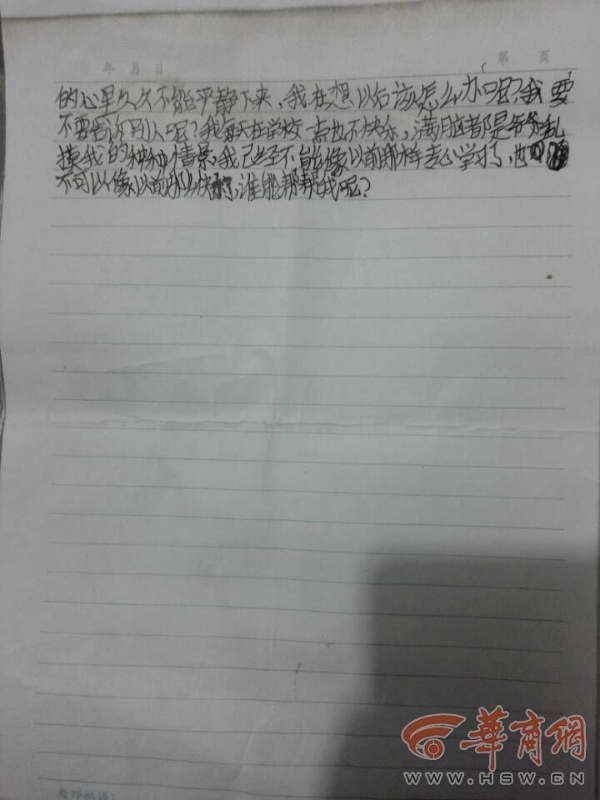 年 月 日
第 页
的心里久久不能平静下来,我在想以后该怎么办呢?我要
不要告诉别人呢?我每天在学校一点也不快乐,满脑都是爷爷乱
摸我的种种情景,我已经不能像以前那样专心学习了,也
不可以像以前那么快了,谁能帮帮我呢?
华商网
WWW.HSW.CN